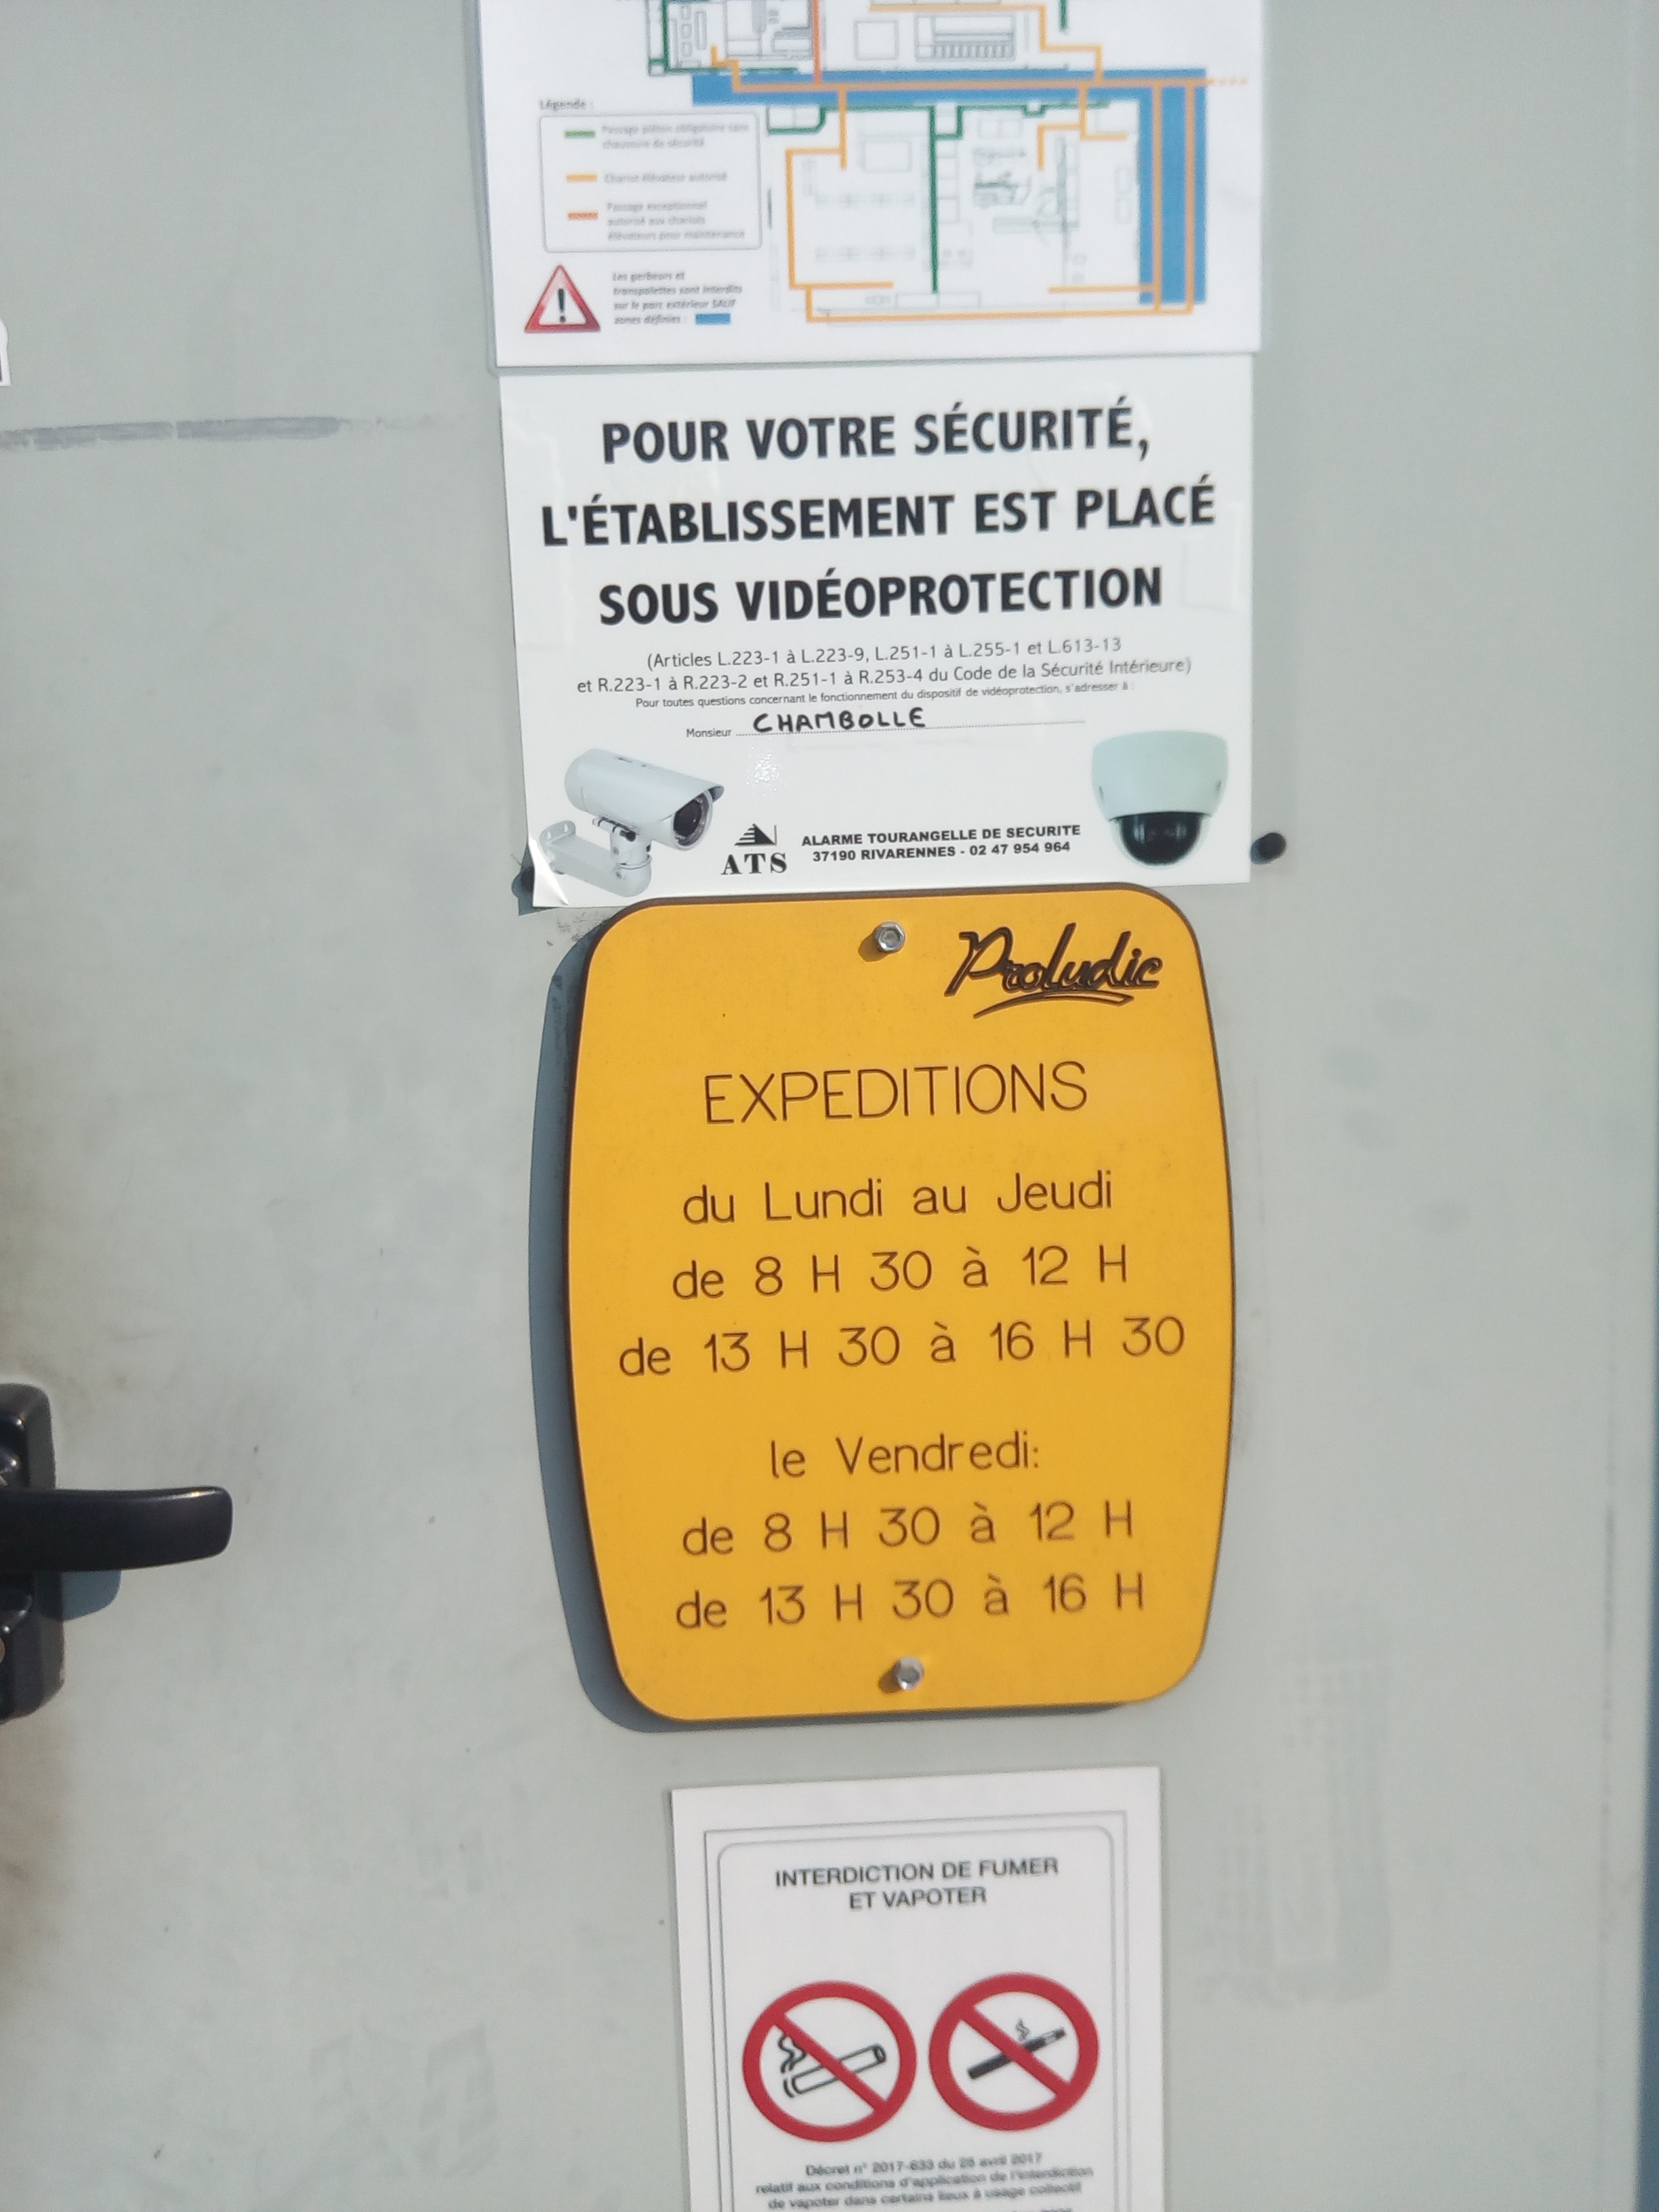 Légende :
Passage piéton obligatoire sans
chaussure de sécurité
Chariot élévateur autorisé
Passage exceptionnel
autorisé aux chariots
élévateurs pour maintenance
Les gerbeurs et
transpalettes sont interdits
sur le parc extérieur SAUF
zones définies :
POUR VOTRE SÉCURITÉ,
L'ÉTABLISSEMENT EST PLACÉ
SOUS VIDÉOPROTECTION
(Articles L.223-1 à L.223-9, L.251-1 à L.255-1 et L.613-13
et R.223-1 à R.223-2 et R.251-1 à R.253-4 du Code de la Sécurité Intérieure)
Pour toutes questions concernant le fonctionnement du dispositif de vidéoprotection, s'adresser à :
Monsieur CHAMBOLLE
ATS
ALARME TOURANGELLE DE SECURITE
37190 RIVARENNES - 02 47 954 964
Proludic
EXPEDITIONS
du Lundi au Jeudi
de 8 H 30 à 12 H
de 13 H 30 à 16 H 30
le Vendredi:
de 8 H 30 à 12 H
de 13 H 30 à 16 H
INTERDICTION DE FUMER
ET VAPOTER
Décret n° 2017-633 du 25 avril 2017
relatif aux conditions d'application de l'interdiction
de vapoter dans certains lieux à usage collectif